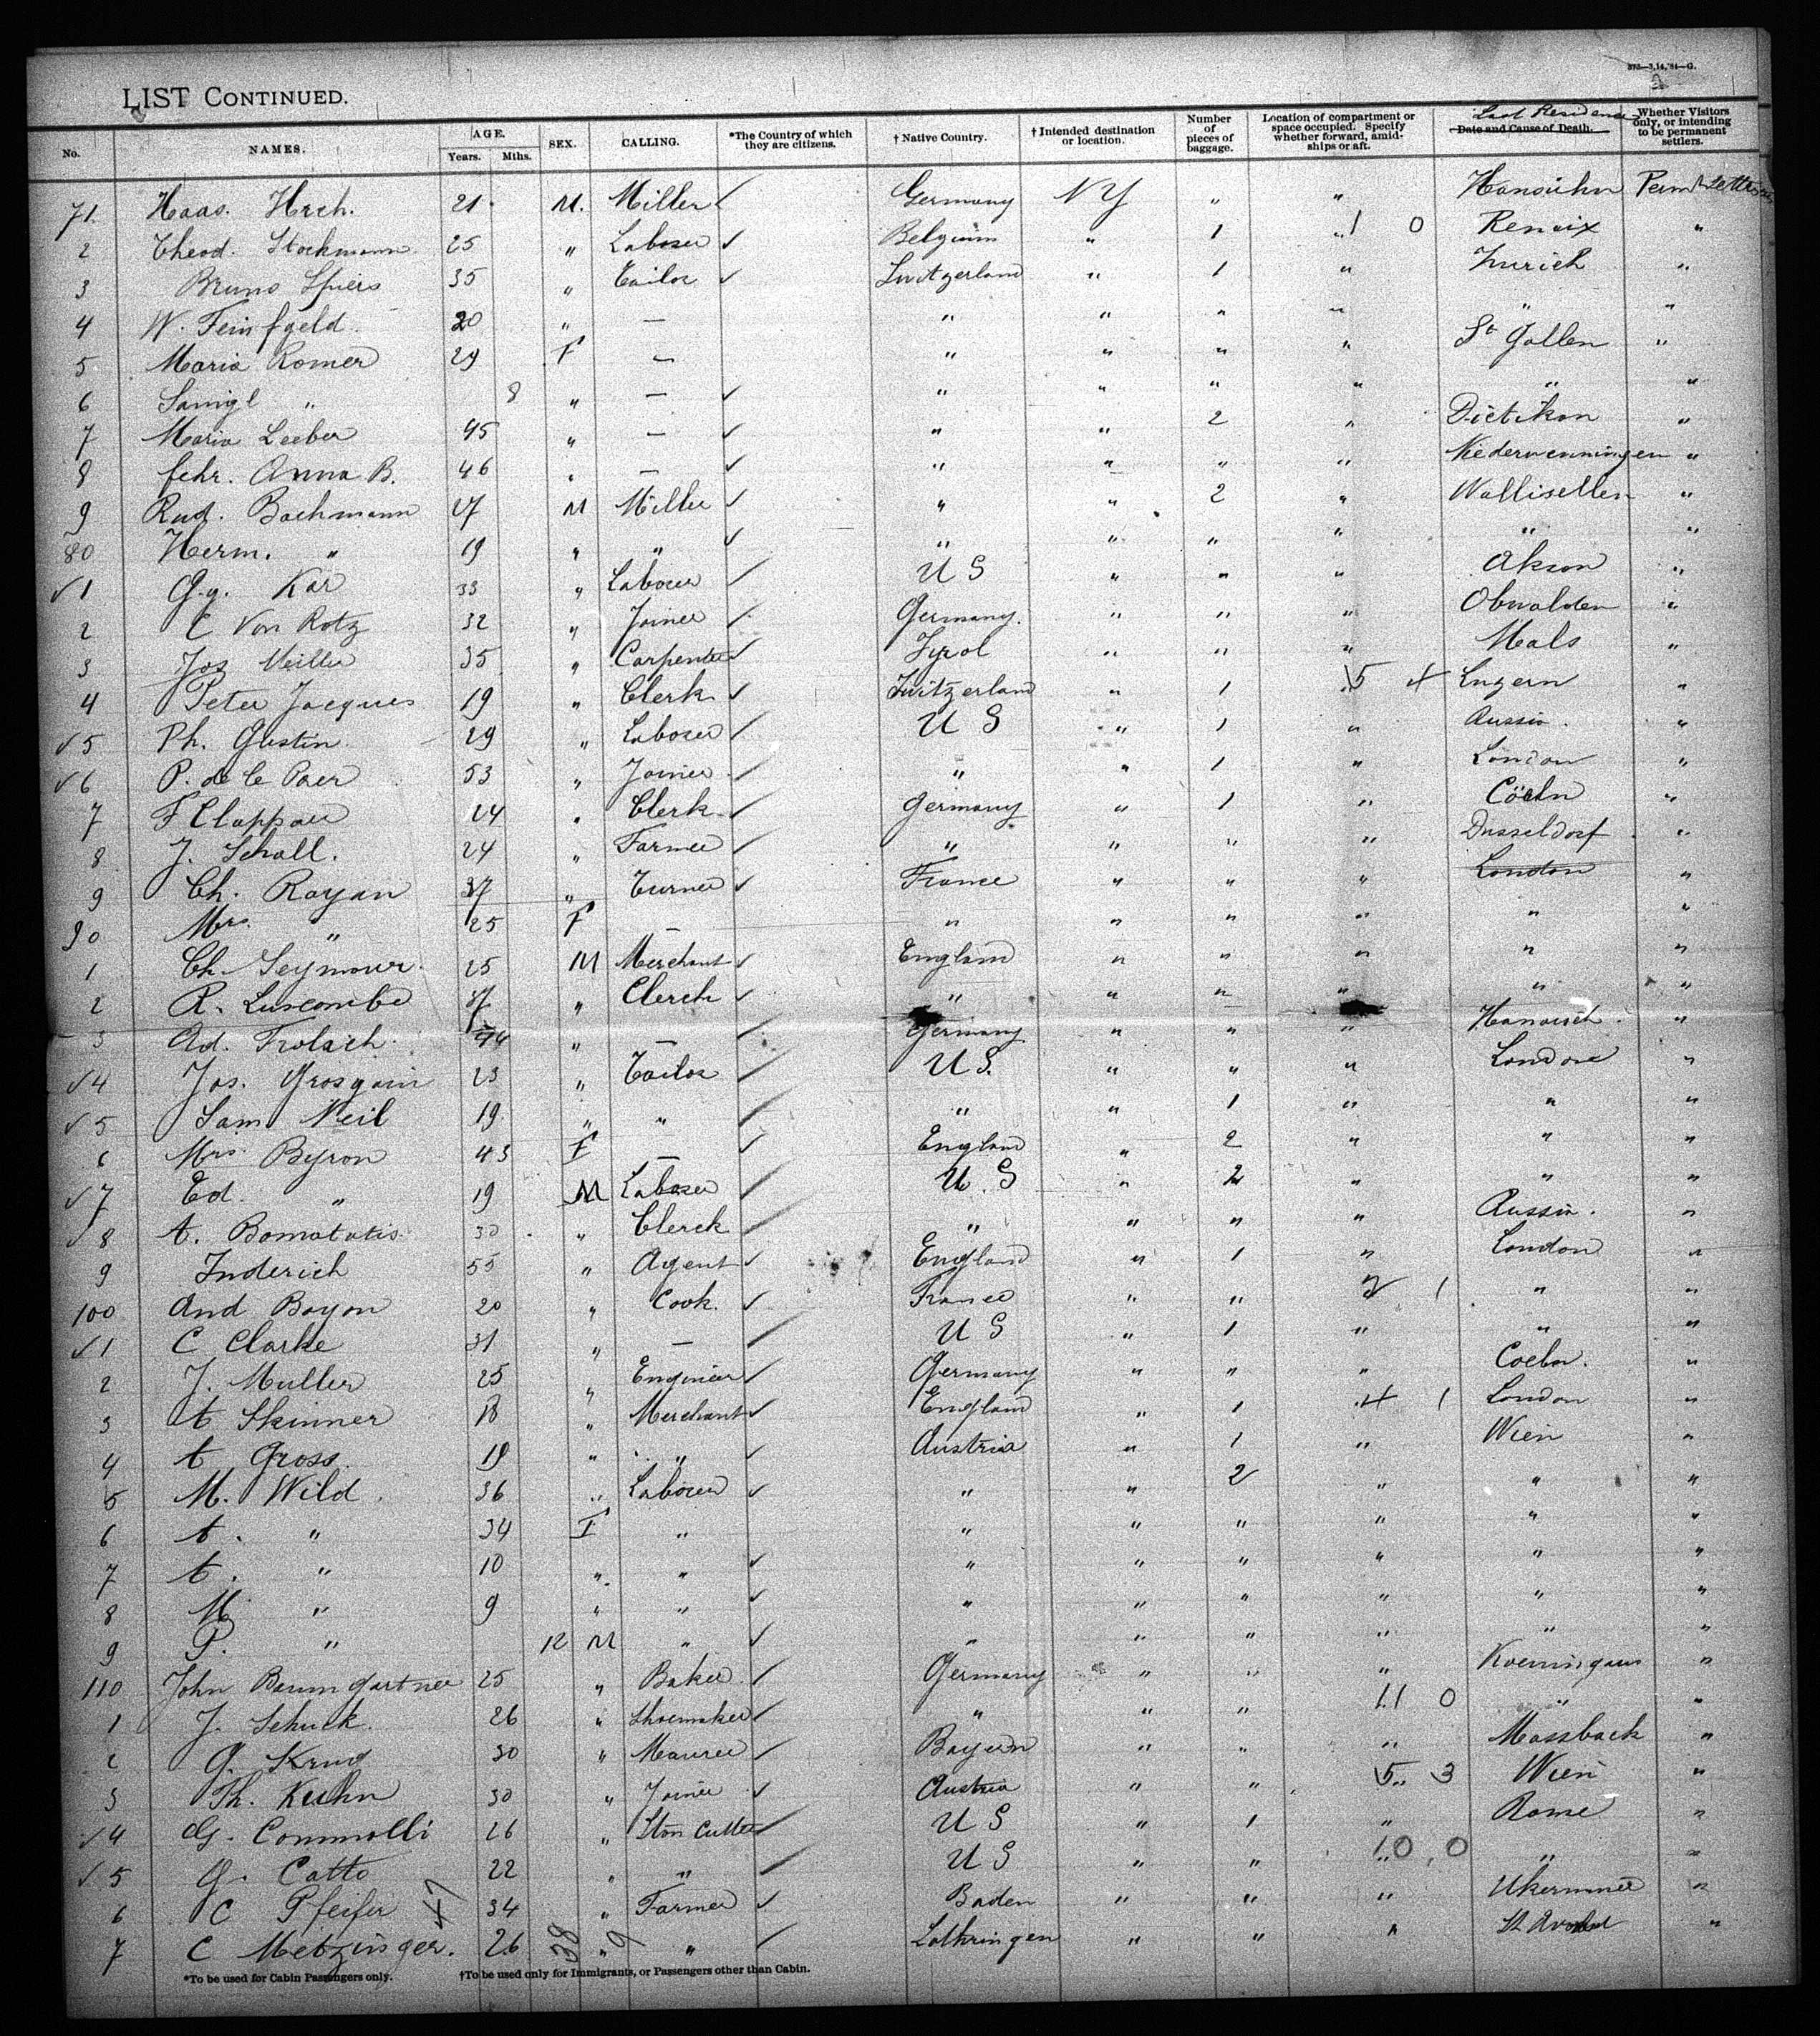 LIST CONTINUED.
No. NAMES. AGE. Years. Mths. SEX. CALLING. *The Country of which they are citizens. † Native Country. † Intended destination or location. Number of pieces of baggage. Location of compartment or space occupied. Specify whether forward, amidships or aft. Last Residence Date and Cause of Death. Whether Visitors only, or intending to be permanent settlers.
71. Haas. Hrch. 21 M. Miller ✓ Germany NY " "
2 Theod. Stockmann 25 " Laborer ✓ Belgium " 1 " 1 0 Renaix "
3 Bruno Spiers 35 " Tailor ✓ Switzerland " 1 " Zurich "
4 W. Feinfgeld 20 " — " " " " " "
5 Maria Romer 29 F — " " " " St Gallen "
6 " 8 " — ✓ " " " " " "
7 Maria Leeber 45 " — ✓ " " 2 " Dietikon "
8 Fehr. Anna B. 46 " — ✓ " " " " Niederwenningen "
9 Rud. Bachmann 17 M Miller ✓ " " 2 " Wallisellen "
80 Herm. " 19 " " ✓ " " " " " "
✓1 G.g. Kar 33 " Laborer ✓ U S " " " Akron "
2 C Von Rotz 32 " Joiner ✓ Germany. " " " Obwalden "
3 Jos 35 " Carpenter ✓ Tyrol " " " Mals "
4 Peter Jacques 19 " Clerk ✓ Switzerland " 1 " 5 4 Luzern "
✓5 Ph. Gustin 29 " Laborer ✓ U S " 1 " "
✓6 P. de le Paer 53 " Joiner ✓ " " 1 " London "
7 F Clappau 24 " Clerk ✓ Germany " 1 " Cöeln "
8 J. Schall. 24 " Farmer ✓ " " " " Dusseldorf "
9 Ch. Rayan 37 " Turner ✓ France " " " London "
90 Mrs. " 25 F — " " " " " "
1 Ch Seymour 25 M Merchant ✓ England " " " " "
2 R. Luscombe " Clerck ✓ " " " " " "
3 Ad. Frolich 44 " — ✓ Germany " " " "
✓4 Jos. Grosgain 23 " Tailor ✓ U S. " " " London "
✓5 Sam Neil 19 " " ✓ " " 1 " " "
6 Mrs. Byron 43 F — ✓ England " 2 " " "
✓7 Ed. " 19 M Laborer ✓ U. S " 2 " " "
✓8 A. Bomatatis 30 " Clerck ✓ " " " " "
9 Inderich 55 " Agent ✓ England " 1 " London "
100 And Bayon 20 " Cook. ✓ France " " 2 1 " "
✓1 C Clarke 31 " — ✓ U S " 1 " " "
2 J. Muller 25 " Engineer ✓ Germany " " " Coeln. "
3 A Skinner 18 " Merchant ✓ England " 1 4 1 London "
4 A Gross 19 " " ✓ Austria " 1 " Wien "
5 M. Wild 36 " Laborer ✓ " " 2 " " "
6 A. " 34 F " " " " " " "
7 A. " 10 " " ✓ " " " " " "
8 M. " 9 " " ✓ " " " " " "
9 P. " 12 M " ✓ " " " " " "
110 John Baumgartner 25 " Baker ✓ Germany " " " "
1 J. Schuck. 26 " Shoemaker ✓ " " " 11 0 " "
2 G. Krug 30 " Maurer ✓ Bayern " " " Massback "
3 Th. Kuhn 30 " Joiner ✓ Austria " " 5 3 Wien "
✓4 G. Commolli 26 " Ston Cutter ✓ U S " 1 " Rome "
✓5 G. Catto 22 " " ✓ U S " " 10 0 " "
6 C Pfeifer 34 " Farmer ✓ Baden " " " "
7 C Metzinger. 26 " " ✓ Lothringen " " " "
*To be used for Cabin Passengers only. †To be used only for Immigrants, or Passengers other than Cabin.